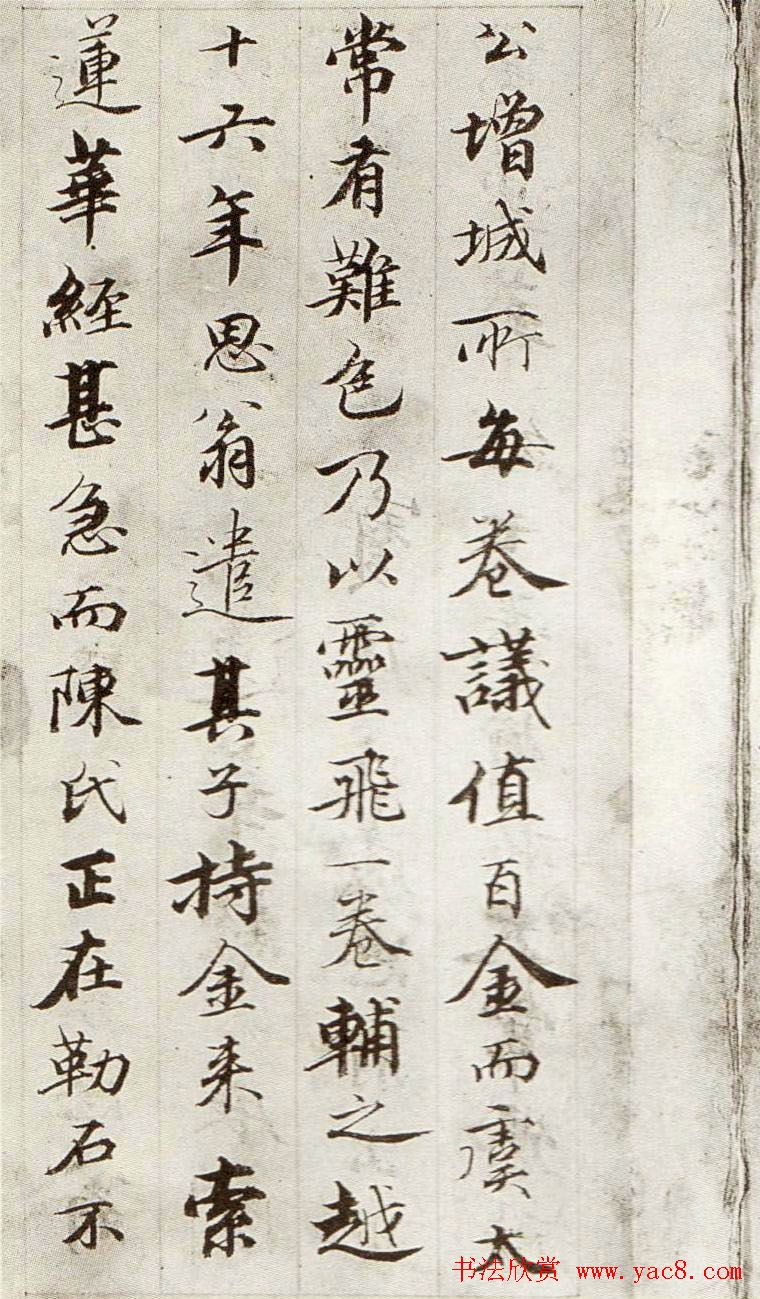 公增城所每卷議值百金而虞太
常有難色乃以靈飛一卷輔之越
十六年思翁遣其子持金来索
蓮華經甚急而陳氏正在勒石不
书法欣赏 www.yac8.com